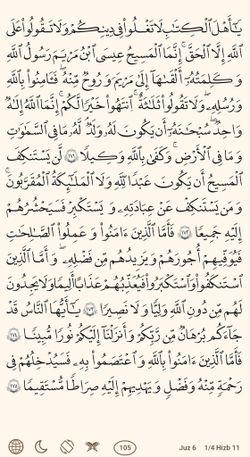 يَـٰٓأَهۡلَ ٱلۡكِتَـٰبِ لَا تَغۡلُواْ فِي دِينِكُمۡ وَلَا تَقُولُواْ عَلَى
ٱللَّهِ إِلَّا ٱلۡحَقَّۚ إِنَّمَا ٱلۡمَسِيحُ عِيسَى ٱبۡنُ مَرۡيَمَ رَسُولُ ٱللَّهِ
وَكَلِمَتُهُۥٓ أَلۡقَىٰهَآ إِلَىٰ مَرۡيَمَ وَرُوحٞ مِّنۡهُۖ فَـَٔامِنُواْ بِٱللَّهِ
وَرُسُلِهِۦۖ وَلَا تَقُولُواْ ثَلَـٰثَةٌۚ ٱنتَهُواْ خَيۡرٗا لَّكُمۡۚ إِنَّمَا ٱللَّهُ إِلَـٰهٞ
وَٰحِدٞۖ سُبۡحَـٰنَهُۥٓ أَن يَكُونَ لَهُۥ وَلَدٞۘ لَّهُۥ مَا فِي ٱلسَّمَـٰوَٰتِ
وَمَا فِي ٱلۡأَرۡضِۗ وَكَفَىٰ بِٱللَّهِ وَكِيلٗا ١٧١ لَّن يَسۡتَنكِفَ
ٱلۡمَسِيحُ أَن يَكُونَ عَبۡدٗا لِّلَّهِ وَلَا ٱلۡمَلَـٰٓئِكَةُ ٱلۡمُقَرَّبُونَۚ
وَمَن يَسۡتَنكِفۡ عَنۡ عِبَادَتِهِۦ وَيَسۡتَكۡبِرۡ فَسَيَحۡشُرُهُمۡ
إِلَيۡهِ جَمِيعٗا ١٧٢ فَأَمَّا ٱلَّذِينَ ءَامَنُواْ وَعَمِلُواْ ٱلصَّـٰلِحَـٰتِ
فَيُوَفِّيهِمۡ أُجُورَهُمۡ وَيَزِيدُهُم مِّن فَضۡلِهِۦۖ وَأَمَّا ٱلَّذِينَ
ٱسۡتَنكَفُواْ وَٱسۡتَكۡبَرُواْ فَيُعَذِّبُهُمۡ عَذَابًا أَلِيمٗا وَلَا يَجِدُونَ
لَهُم مِّن دُونِ ٱللَّهِ وَلِيّٗا وَلَا نَصِيرٗا ١٧٣ يَـٰٓأَيُّهَا ٱلنَّاسُ قَدۡ
جَآءَكُم بُرۡهَـٰنٞ مِّن رَّبِّكُمۡ وَأَنزَلۡنَآ إِلَيۡكُمۡ نُورٗا مُّبِينٗا ١٧٤
فَأَمَّا ٱلَّذِينَ ءَامَنُواْ بِٱللَّهِ وَٱعۡتَصَمُواْ بِهِۦ فَسَيُدۡخِلُهُمۡ فِي
رَحۡمَةٖ مِّنۡهُ وَفَضۡلٖ وَيَهۡدِيهِمۡ إِلَيۡهِ صِرَٰطٗا مُّسۡتَقِيمٗا ١٧٥
105 Juz 6 1/4 Hizb 11